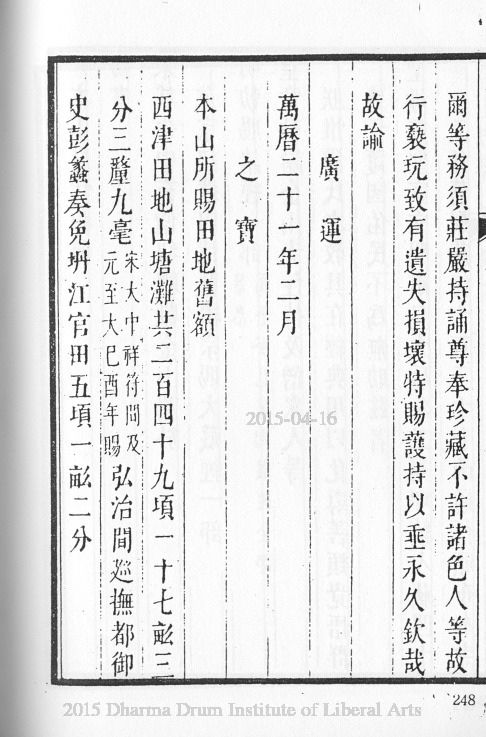 爾等務須莊嚴持誦尊奉珍藏不許諸色人等故
行褻玩致有遺失損壞特賜護持以垂永久欽哉
故諭
廣運
萬曆二十一年二月
之寶
本山所賜田地舊額
西津田地山塘灘共二百四十九頃一十七畝三
分三釐九毫宋大中祥符間及元至大己酉年賜弘治間廵撫都御
史彭蠡奏免坍江官田五頃一畝二分
2015-04-16
248
2015 Dharma Drum Institute of Liberal Arts